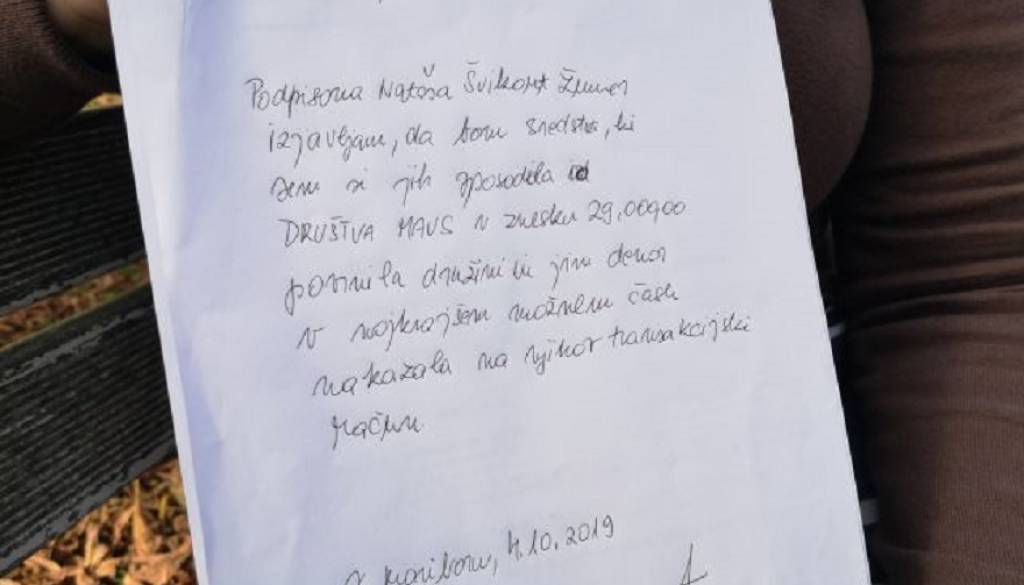 Podpisana Nataša Švikart Žumer
izjavljam, da bom sredstva, ki
sem si jih sposodila od
DRUŠTVA MAVS v znesku 29.000,00
povrnila družini ki jim denar
v najkrajšem možnem času
nakazala na njihov transakcijski
račun.
V Mariboru, 4.10.2019